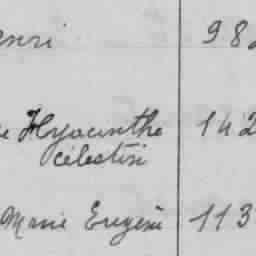 enri 982
e Hyacinthe 142
célestin
Marie Eugène 113